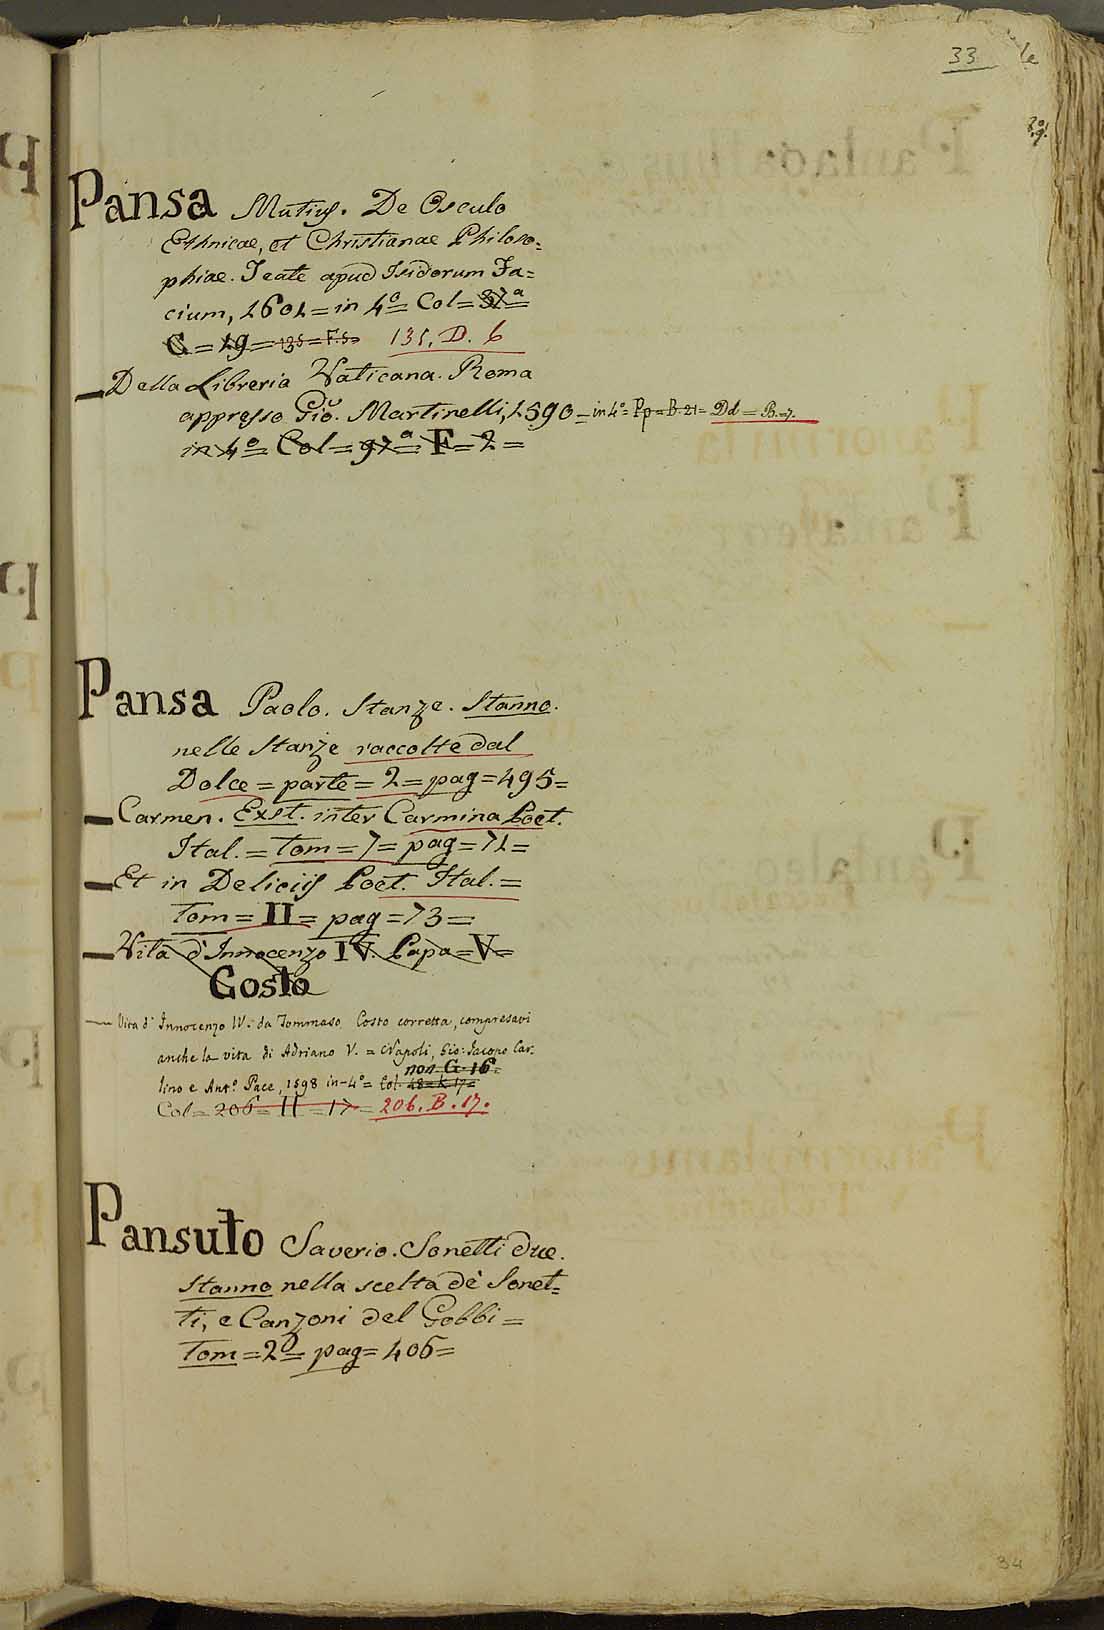 33
le
Pansa Mutius. De Osculo
Ethnicae, et Christianae Philoso=
phiae. Teate apud Isidorum Fa=
cium, 1601 = in 4° = Col = 87ª
C = 19 = 135 = F. 5 = 135. D. 6
Della Libreria Vaticana. Roma
appresso Gio. Martinelli, 1590 = in 4° = Pp = B. 21 = Dd = B. 7.
in 4° = Col = 97ª = F = 2 =
Pansa Paolo. Stanze. Stanno.
nelle Stanze raccolte dal
Dolce = parte = 2 = pag = 495 =
Carmen. Exst. inter Carmina Poet.
Ital. = Tom = 7 = pag = 71 =
Et in Deliciis Poet. Ital. =
Tom = II = pag = 73 =
Vita d'Innocenzo IV. Papa = V =
Costo
Vita d' Innocenzo IV. da Tommaso Costo corretta, compresavi
anche la vita di Adriano V. = Napoli, Gio: Jacopo Car-
non G. 16 =
lino e Ant.° Pace, 1598 in-4° = Col. 48 = k. 17 =
Col = 206 = II = 17 = 206. B. 17.
Pansuto Saverio. Sonetti due.
Stanno nella scelta dè Sonet=
ti, e Canzoni del Gobbi =
Tom = 2° = pag = 406 =
34